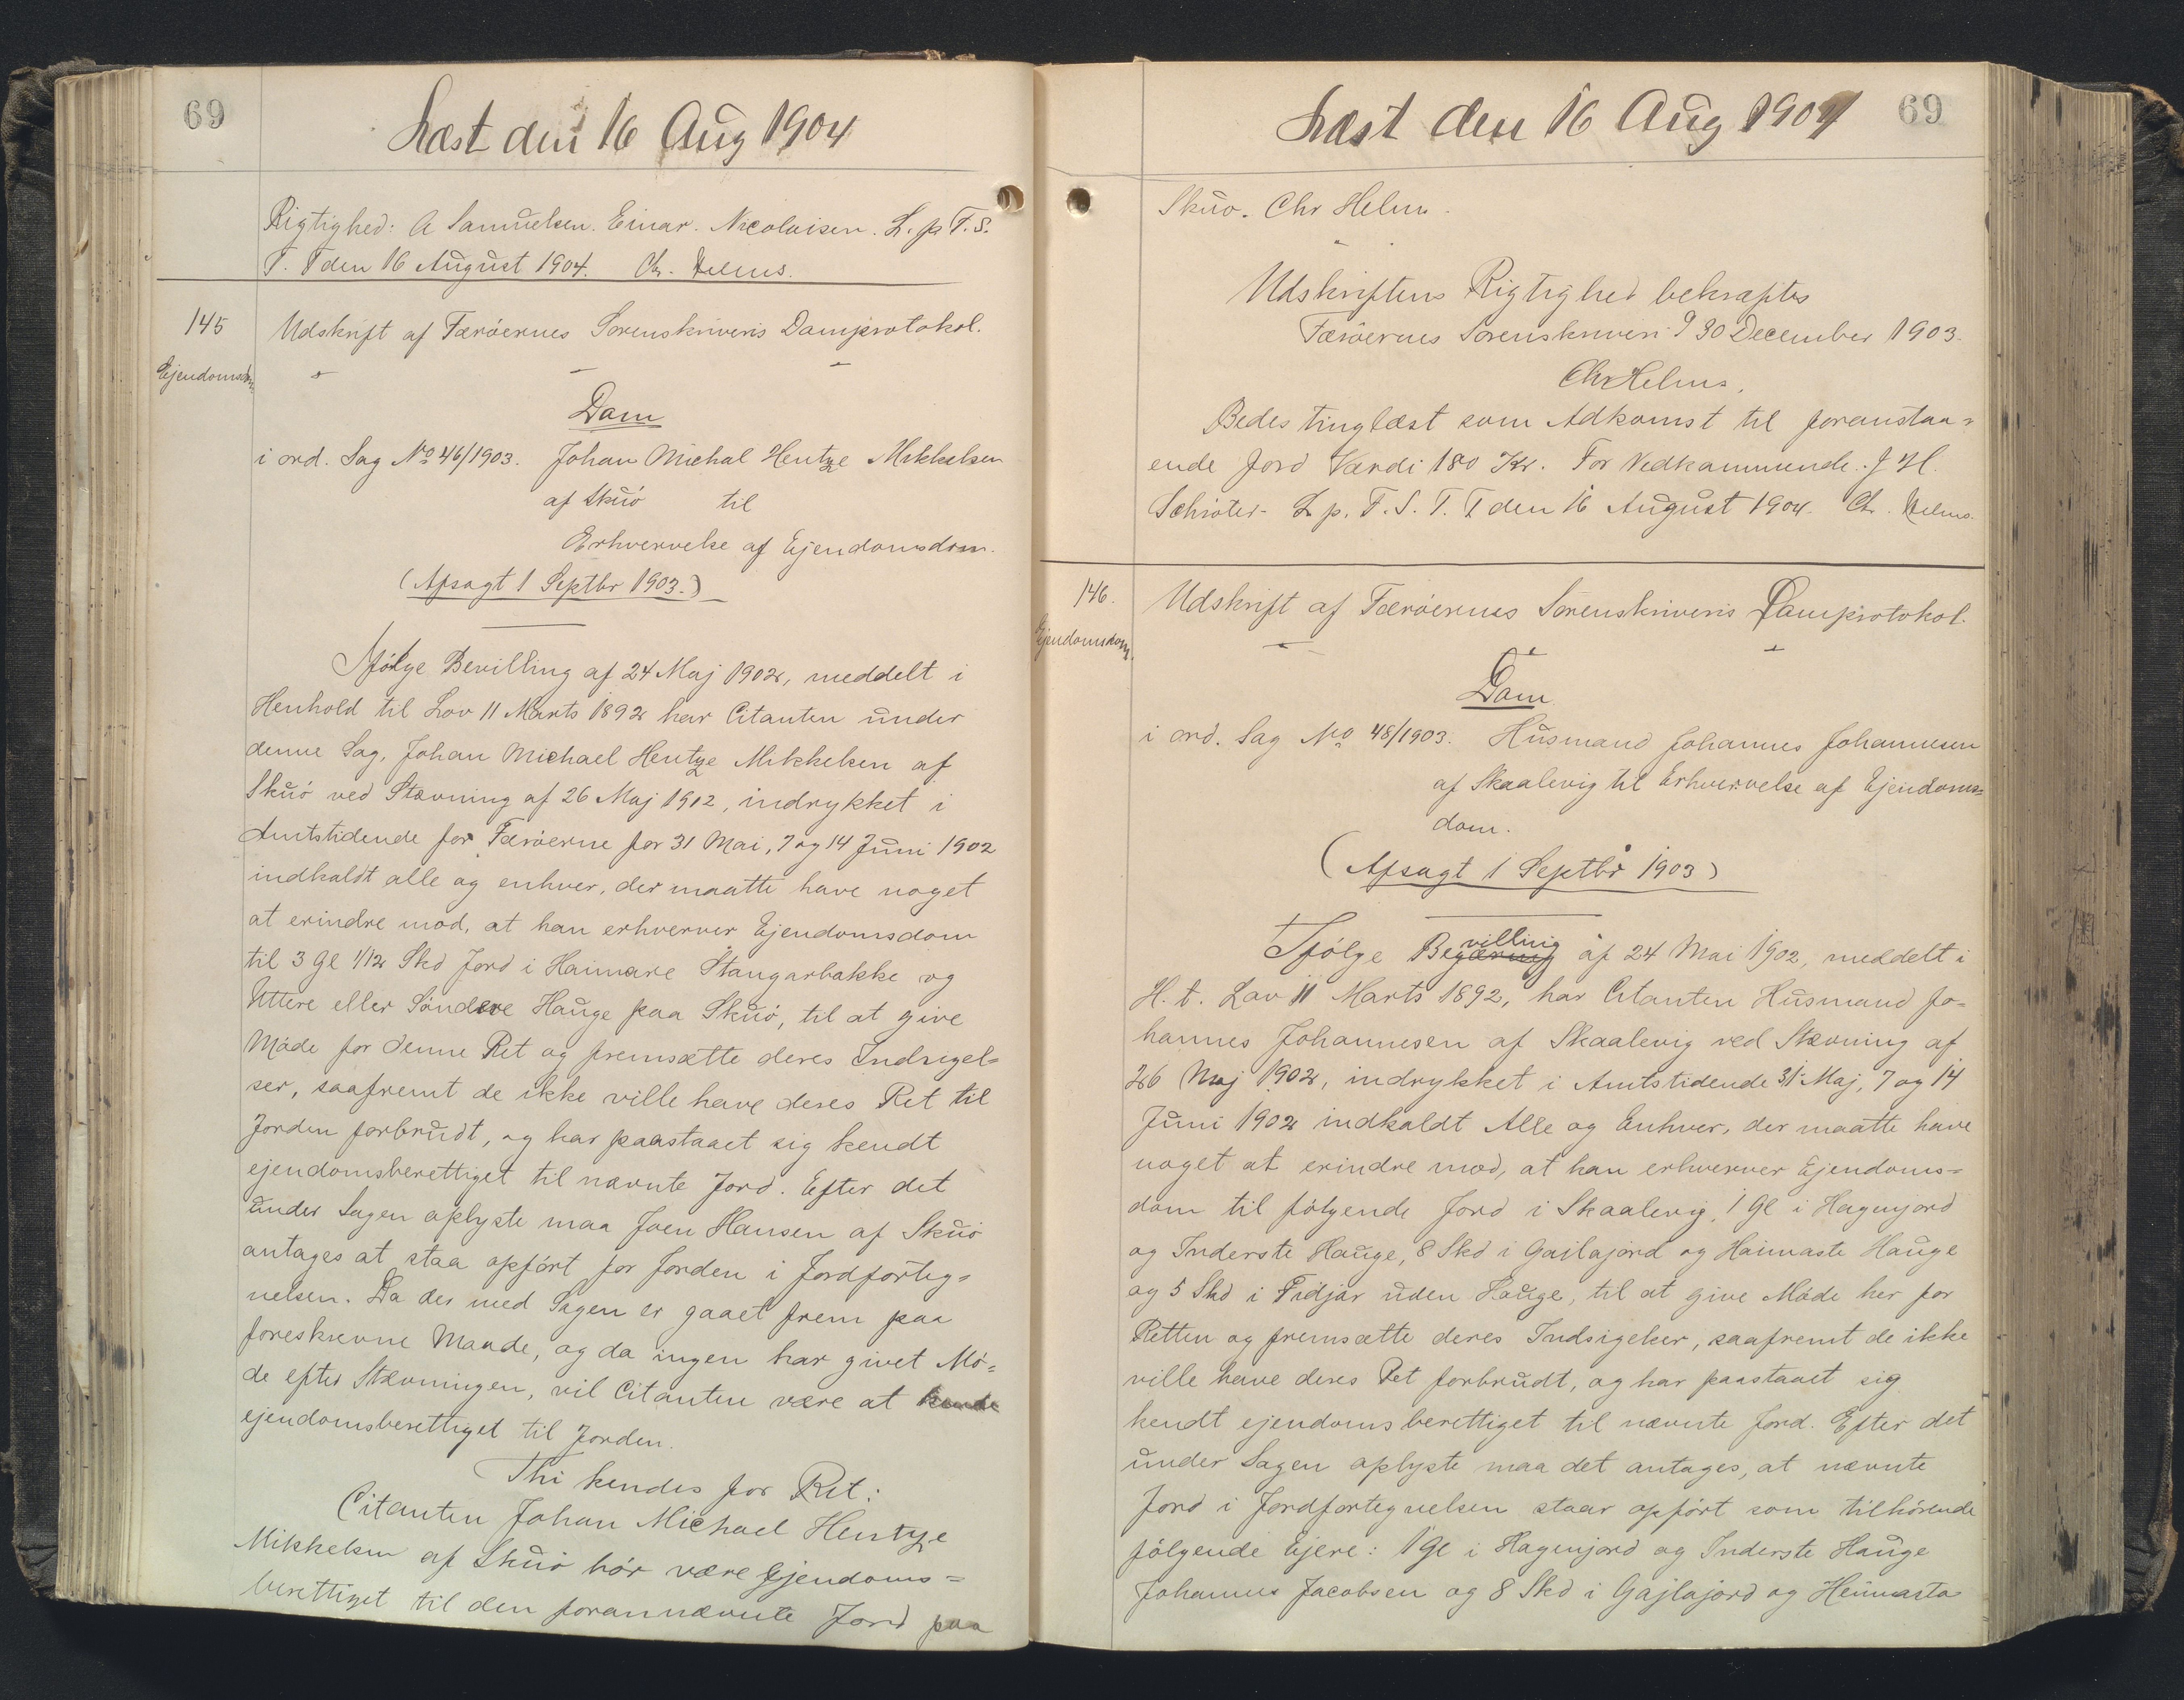 69
Læst den 16 Aug 1904
Rigtighed: A Samuelsen. Einar. Nicolaisen. L. p F. S.
T. T den 16 August 1904. Ch. Helms.
145
Ejendomsdom
Udskrift af Færöernes Sorenskriveris Domprotokol.
Dom
i ord. Sag No 46/1903. Johan Michal Hentze Mikkelsen
af Skuö til
Erhvervelse af Ejendomsdom.
(Afsagt 1 Septbr 1903.)
Ifölge Bevilling af 24 Maj 1902, meddelt i
Henhold til Lov 11 Marts 1892 har Citanten under
denne Sag, Johan Michael Hentze Mikkelsen af
Skuö ved Stævning af 26 Maj 1912, indrykket i
Amtstidende for Færöerne for 31 Mai, 7 og 14 Juni 1902
indkaldt alle og enhver, der maatte have noget
at erindre mod, at han erhverver Ejendomsdom
til 3 Gl 1/12 Skd Jord i Haimare Stangarbakke og
Uttere eller Söndere Hauge paa Skuö, til at give
Möde for denne Ret og fremsætte deres Indsigel=
ser, saafremt de ikke ville have deres Ret til
Jorden forbrudt, og har paastaaet sig kendt
ejendomsberettiget til nævnte Jord. Efter det
under Sagen oplyste maa Joen Hansen af Skuö
antages at staa opfört for Jorden i Jordforteg=
nelsen. Da der med Sagen er gaaet frem paa
foreskrevne Maade, og da ingen har givet Mö=
de efter Stævningen, vil Citanten være at kende
ejendomsberettiget til Jorden.
Thi kendes for Ret:
Citanten Johan Michael Hentze
Mikkelsen af Skuö bör være Ejendoms=
berettiget til den forannævnte Jord paa
Læst den 16 Aug 1904
69
Skuö. Chr Helms.
Udskriftens Rigtighed bekræftes
Færöernes Sorenskriveri d 30 December 1903.
Chr Helms.
Bedes tinglæst som Adkomst til foranstaa=
ende Jord Værdi 180 Kr. For Vedkommende. J H.
Schröter- L p. F. S. T. T den 16 August 1904. Ch. Helms.
146.
Ejendomsdom
Udskrift af Færöernes Sorenskriveris Domprotokol.
Dom
i ord. Sag No 48/1903. Husmand Johannes Johannesen
af Skaalevig til Erhvervelse af Ejendoms=
dom.
(Afsagt 1 Septbr 1903)
Ifölge Begæring villing af 24 Mai 1902, meddelt i
H. t. Lov 11 Marts 1892, har Citanten Husmand Jo=
hannes Johannesen af Skaalevig ved Stævning af
26 Maj 1902, indrykket i Amtstidende 31 Maj, 7 og 14
Juni 1902 indkaldt Alle og Enhver, der maatte have
noget at erindre mod, at han erhverver Ejendoms=
dom til fölgende Jord i Skaalevig, 1 Gl i Hagenjord
og Inderste Hauge, 8 Skd i Gailajord og Haimaste Hauge
og 5 Skd i Fidjar uden Hauge, til at give Möde her for
Retten og fremsætte deres Indsigelser, saafremt de ikke
ville have deres Ret forbrudt, og har paastaaet sig
kendt ejendomsberettiget til nævnte Jord. Efter det
under Sagen oplyste maa det antages, at nævnte
Jord i Jordfortegnelsen staar opfört som tilhörende
fölgende Ejere: 1 Gl i Hagenjord og Inderste Hauge
Johannes Jacobsen og 8 Skd i Gajlajord og Heimasta